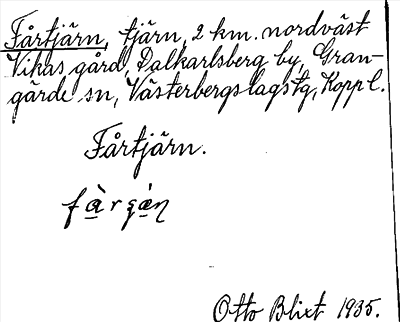 Fårtjärn, tjärn, 2 km. nordväst
Vikas gård, Dalkarlsberg by, Gran-
gärde sn, Västerbergslags tg, Kopp l.
Fårtjärn.
Otto Blixt 1935.